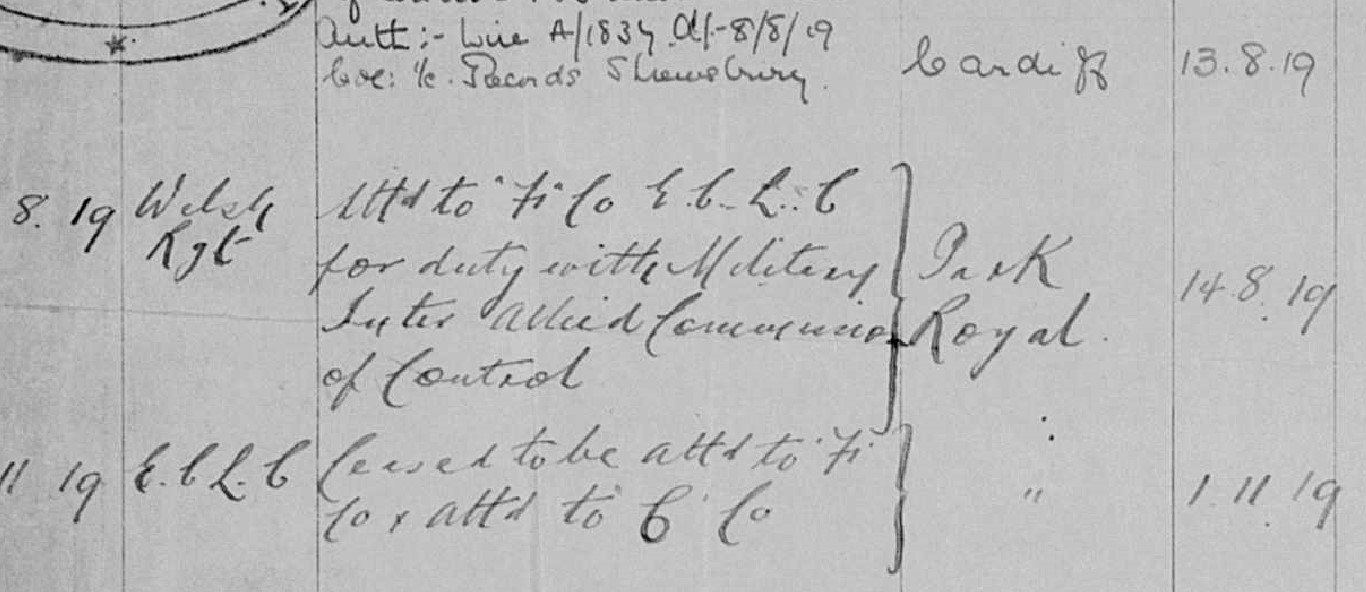 Auth:- Wire A/1834 d/-8/8/19
Coe: i/c. Records Shrewsbury. Cardiff 13.8.19
8. 19 Welsh Att'd to "F" Co E.C.L.C
Rgt for duty with Military Park 14.8.19
Inter Allied Commission Royal.
of Control
11 19 E.C.L.C Ceased to be att'd to "F" "
Co & att'd to "C" Co " 1.11.19